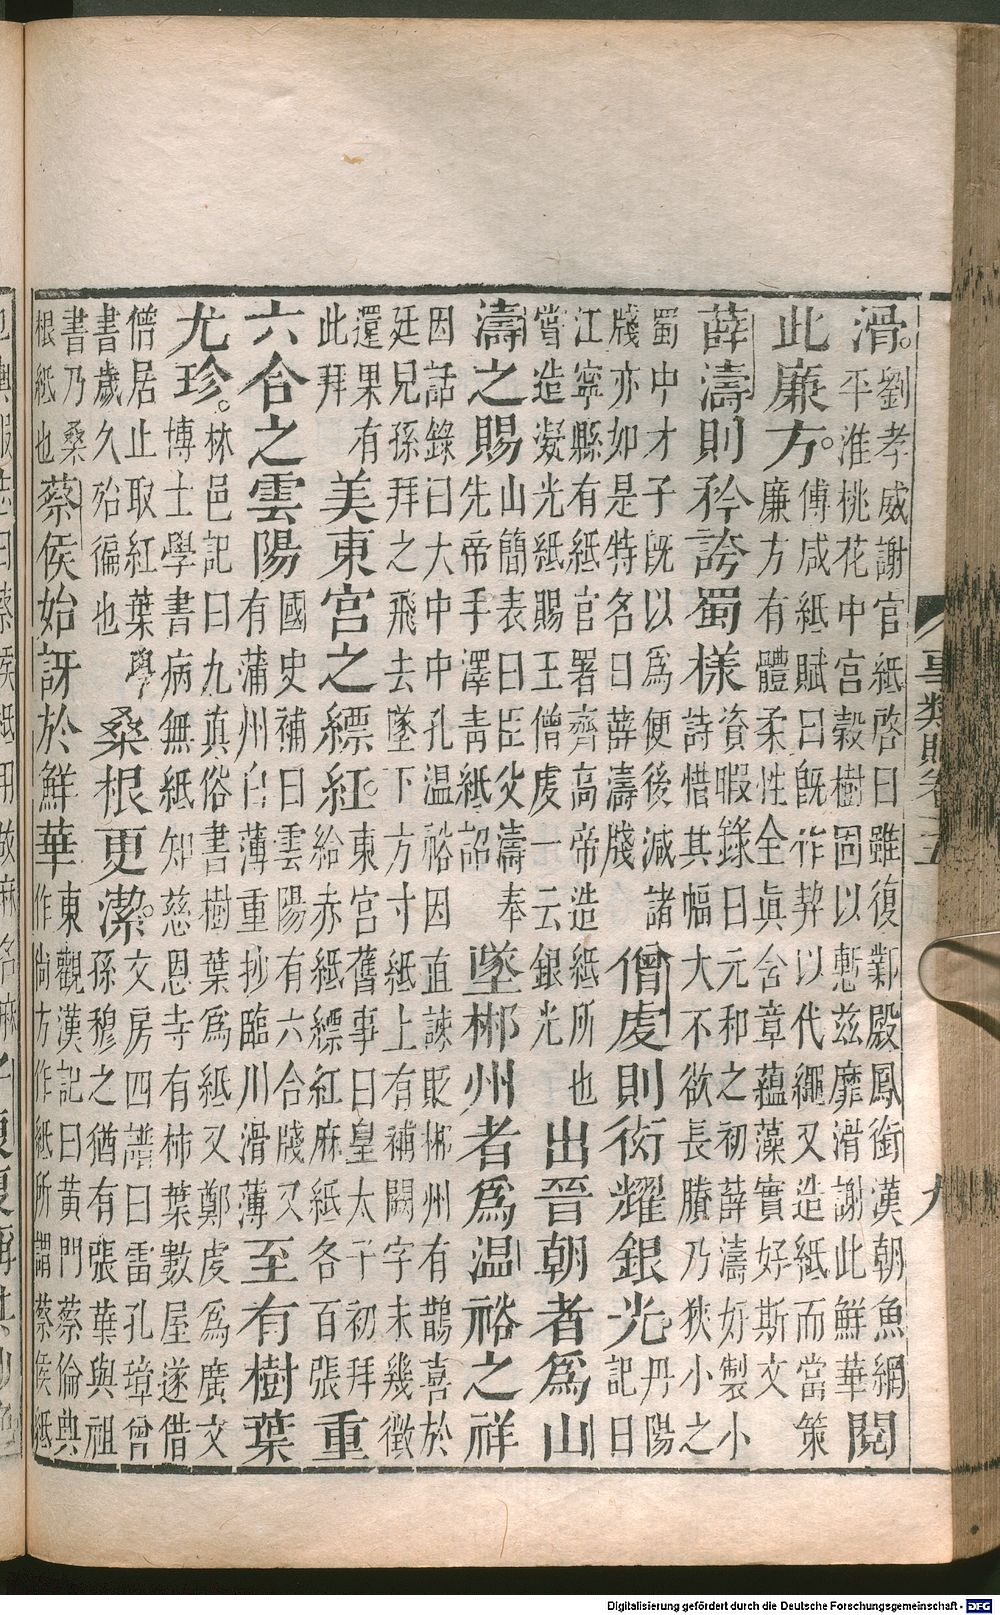 滑。劉孝威謝官紙啓曰雖復鄴殿鳳銜漢朝魚網平淮桃花中宮縠樹固以慙兹靡滑謝此鮮華閱
此廉方。傅咸紙賦曰既作契以代繩又造紙而當策廉方有體柔性全眞含章蘊藻實好斯文
薛濤則矜誇蜀樣資暇錄曰元和之初薛濤好製小詩惜其幅大不欲長賸乃狹小之
蜀中才子既以爲便後減諸牋亦如是特名曰薛濤牋僧虔則衒耀銀光。丹陽記曰
江寧縣有紙官署齊高帝造紙所也嘗造凝光紙賜王僧虔一云銀光出晉朝者爲山
濤之賜山簡表曰臣父濤奉先帝手澤靑紙詔墜郴州者爲温裕之祥
因話錄曰大中中孔温裕因直諫貶郴州有鵲喜於廷兒孫拜之飛去墜下方寸紙上有補闕字未幾徵
還果有此拜美東宮之縹紅。東宮舊事曰皇太子初拜給赤紙縹紅麻紙各百張重
六合之雲陽國史補曰雲陽有六合牋又有蒲州白薄重抄臨川滑薄至有樹葉
尤珍。林邑記曰九真俗書樹葉爲紙又鄭虔爲廣文博士學書病無紙知慈恩寺有柿葉數屋遂借
僧居止取紅葉學書歲久殆徧也桑根更潔。文房四譜曰雷孔璋曾孫穆之猶有張華與祖
書乃桑根紙也蔡侯始訝於鮮華東觀漢記曰黃門蔡倫典作尚方作紙所謂蔡侯紙
事類賦卷十五
九
Digitalisierung gefördert durch die Deutsche Forschungsgemeinschaft - DFG